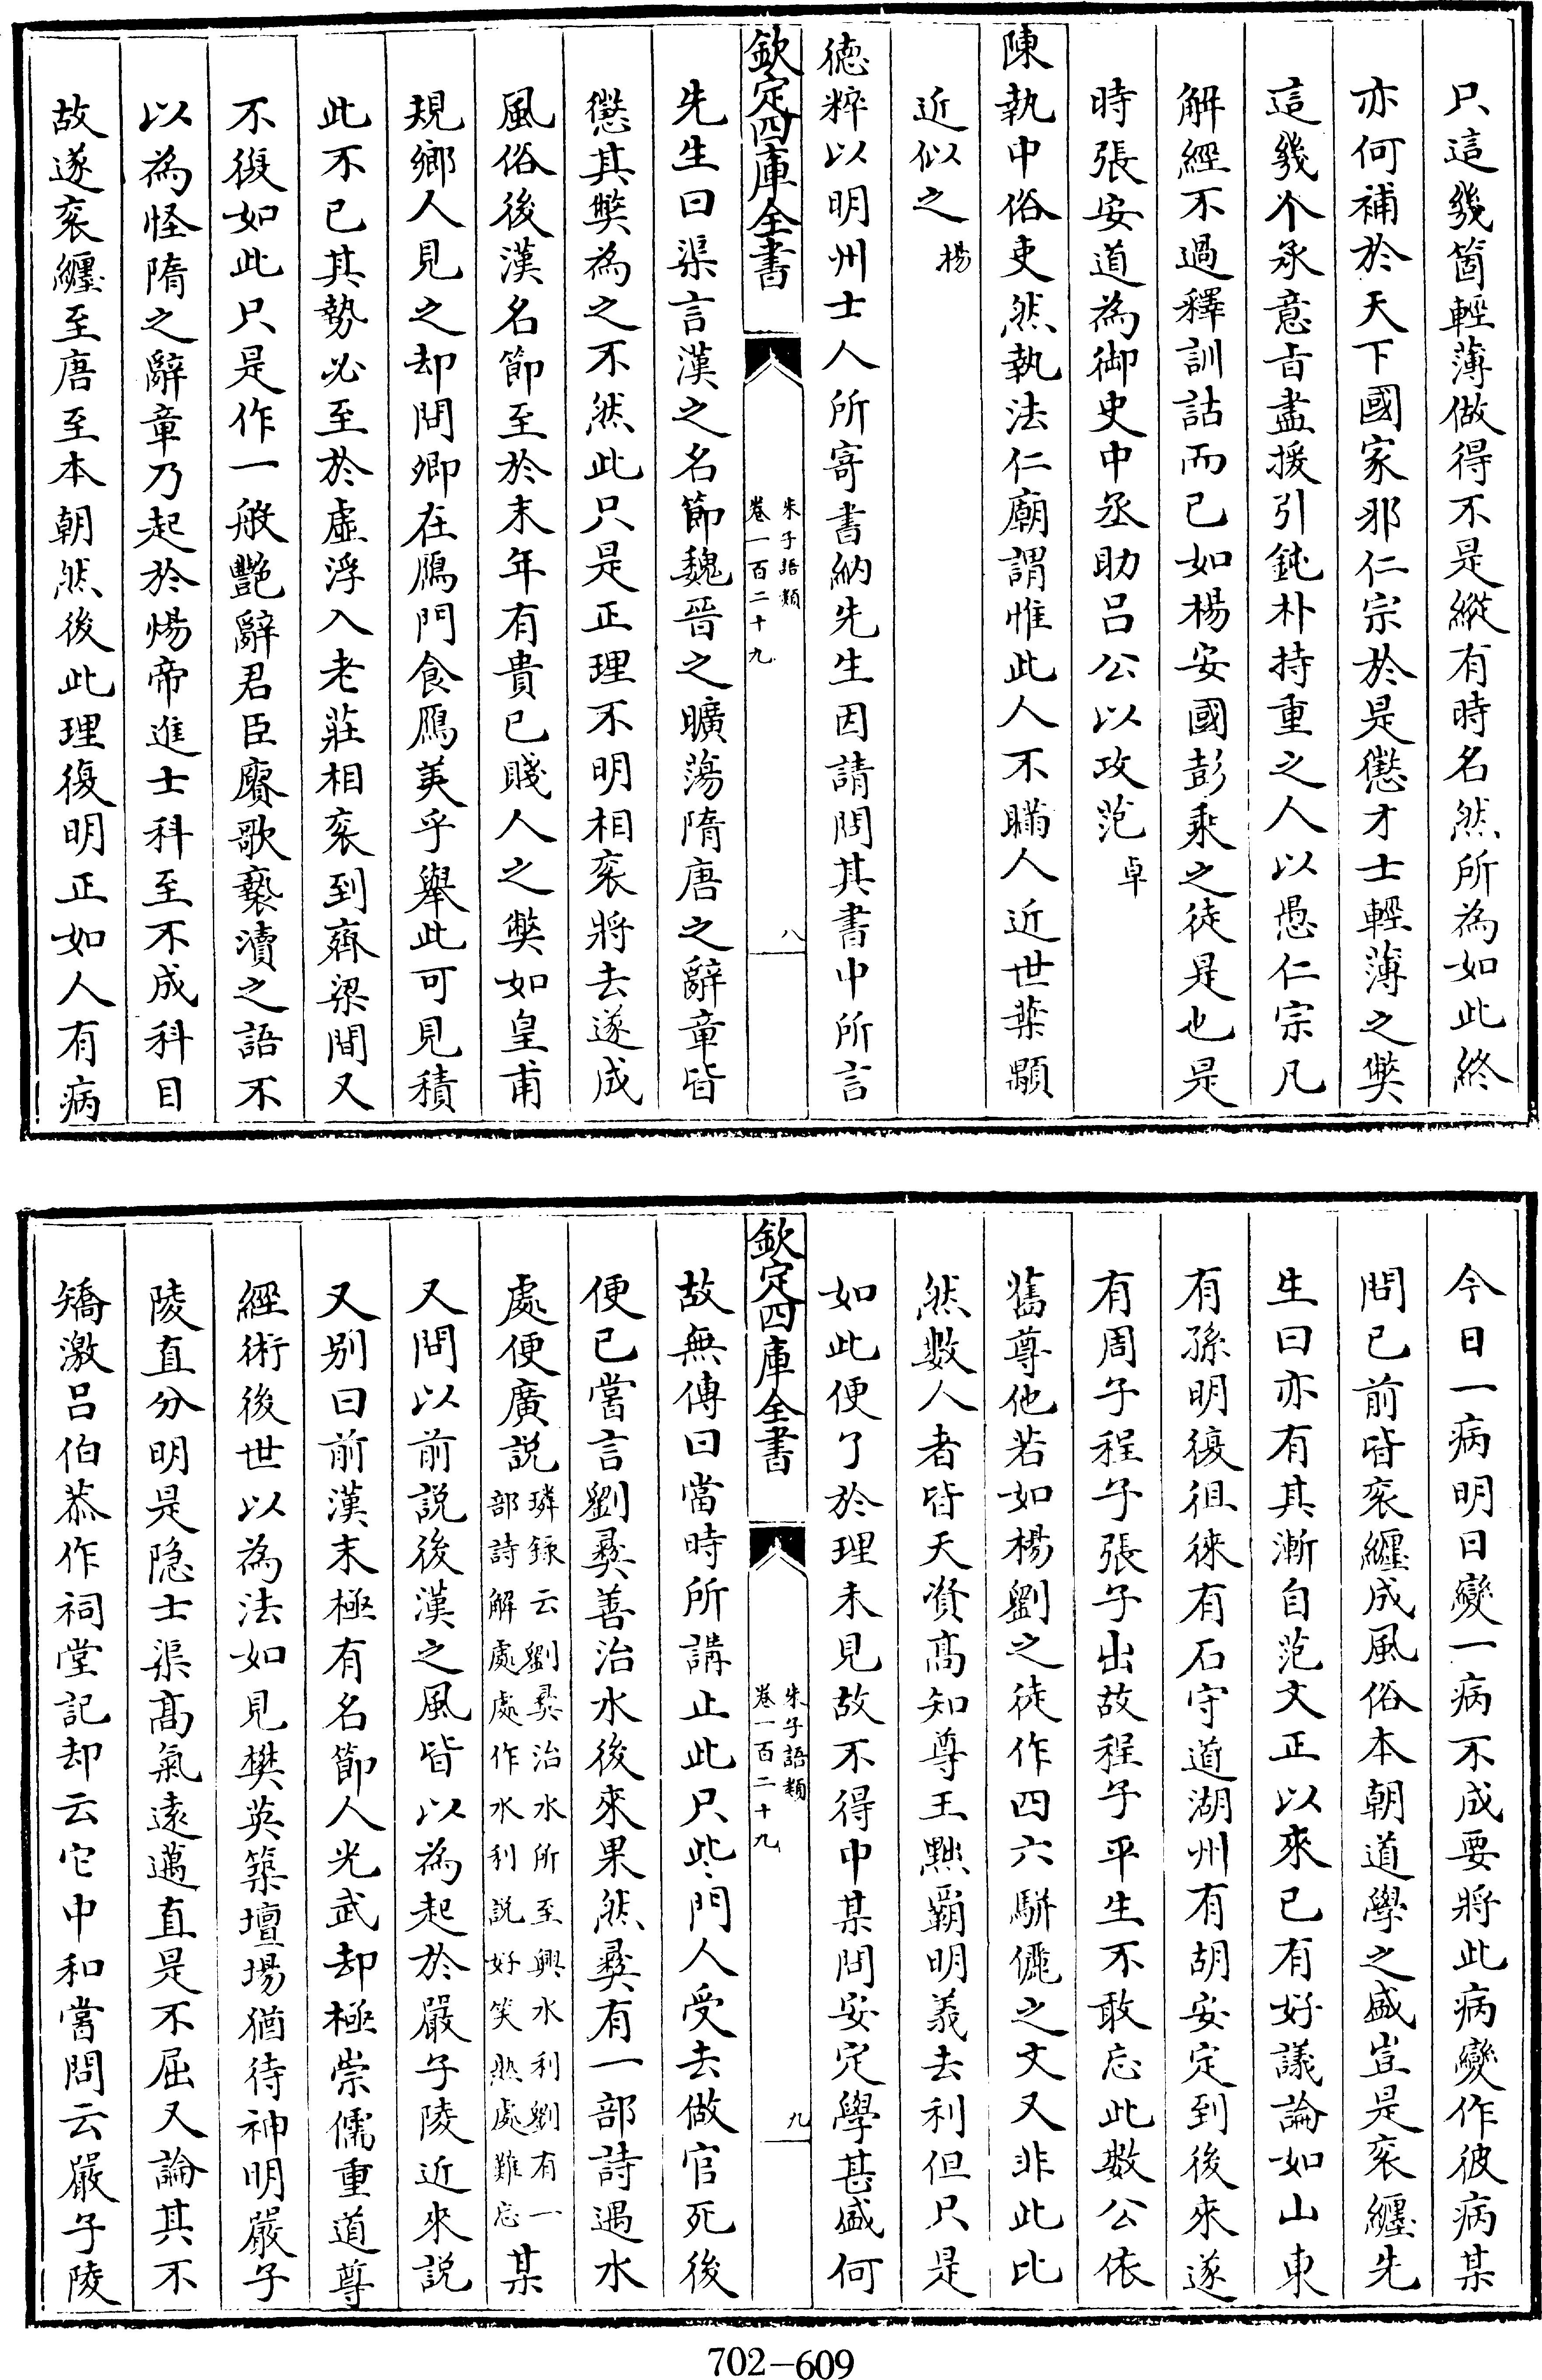 只這幾箇輕薄做得不是縱有時名然所為如此終
亦何補於天下國家邪仁宗於是懲才士輕薄之獘
這幾个承意㫖盡援引鈍朴持重之人以愚仁宗凡
解經不過釋訓詁而已如楊安國彭乘之徒是也是
時張安道為御史中丞助吕公以攻范卓
陳執中俗吏然執法仁廟謂惟此人不瞞人近世葉顒
近似之楊
徳粹以明州士人所寄書納先生因請問其書中所言
欽定四庫全書
朱子語類
卷一百二十九
八
先生曰渠言漢之名節魏晉之曠蕩隋唐之辭章皆
懲其獘為之不然此只是正理不明相衮將去遂成
風俗後漢名節至於末年有貴已賤人之獘如皇甫
規鄉人見之却問卿在鴈門食鴈美乎舉此可見積
此不已其勢必至於虛浮入老莊相衮到齊梁間又
不復如此只是作一般艷辭君臣賡歌䙝瀆之語不
以為怪隋之辭章乃起於煬帝進士科至不成科目
故遂衮纒至唐至本朝然後此理復明正如人有病
今日一病明日變一病不成要將此病變作彼病某
問已前皆衮纒成風俗本朝道學之盛豈是衮纒先
生曰亦有其漸自范文正以來已有好議論如山東
有孫明復徂徠有石守道湖州有胡安定到後來遂
有周子程子張子出故程子平生不敢忘此數公依
舊尊他若如楊劉之徒作四六駢儷之文又非此比
然數人者皆天資髙知尊王黜覇明義去利但只是
如此便了於理未見故不得中某問安定學甚盛何
欽定四庫全書
朱子語類
卷一百二十九
九
故無傳曰當時所講止此只些門人受去做官死後
便已嘗言劉彛善治水後來果然彛有一部詩遇水
處便廣説璘錄云劉彛治水所至興水利劉有一部詩解處處作水利説好笑熟處難忘某
又問以前説後漢之風皆以為起於嚴子陵近來説
又别曰前漢末極有名節人光武却極崇儒重道尊
經術後世以為法如見樊英築壇塲猶待神明嚴子
陵直分明是隐士渠髙氣逺邁直是不屈又論其不
矯激吕伯恭作祠堂記却云它中和嘗問云嚴子陵
702-609